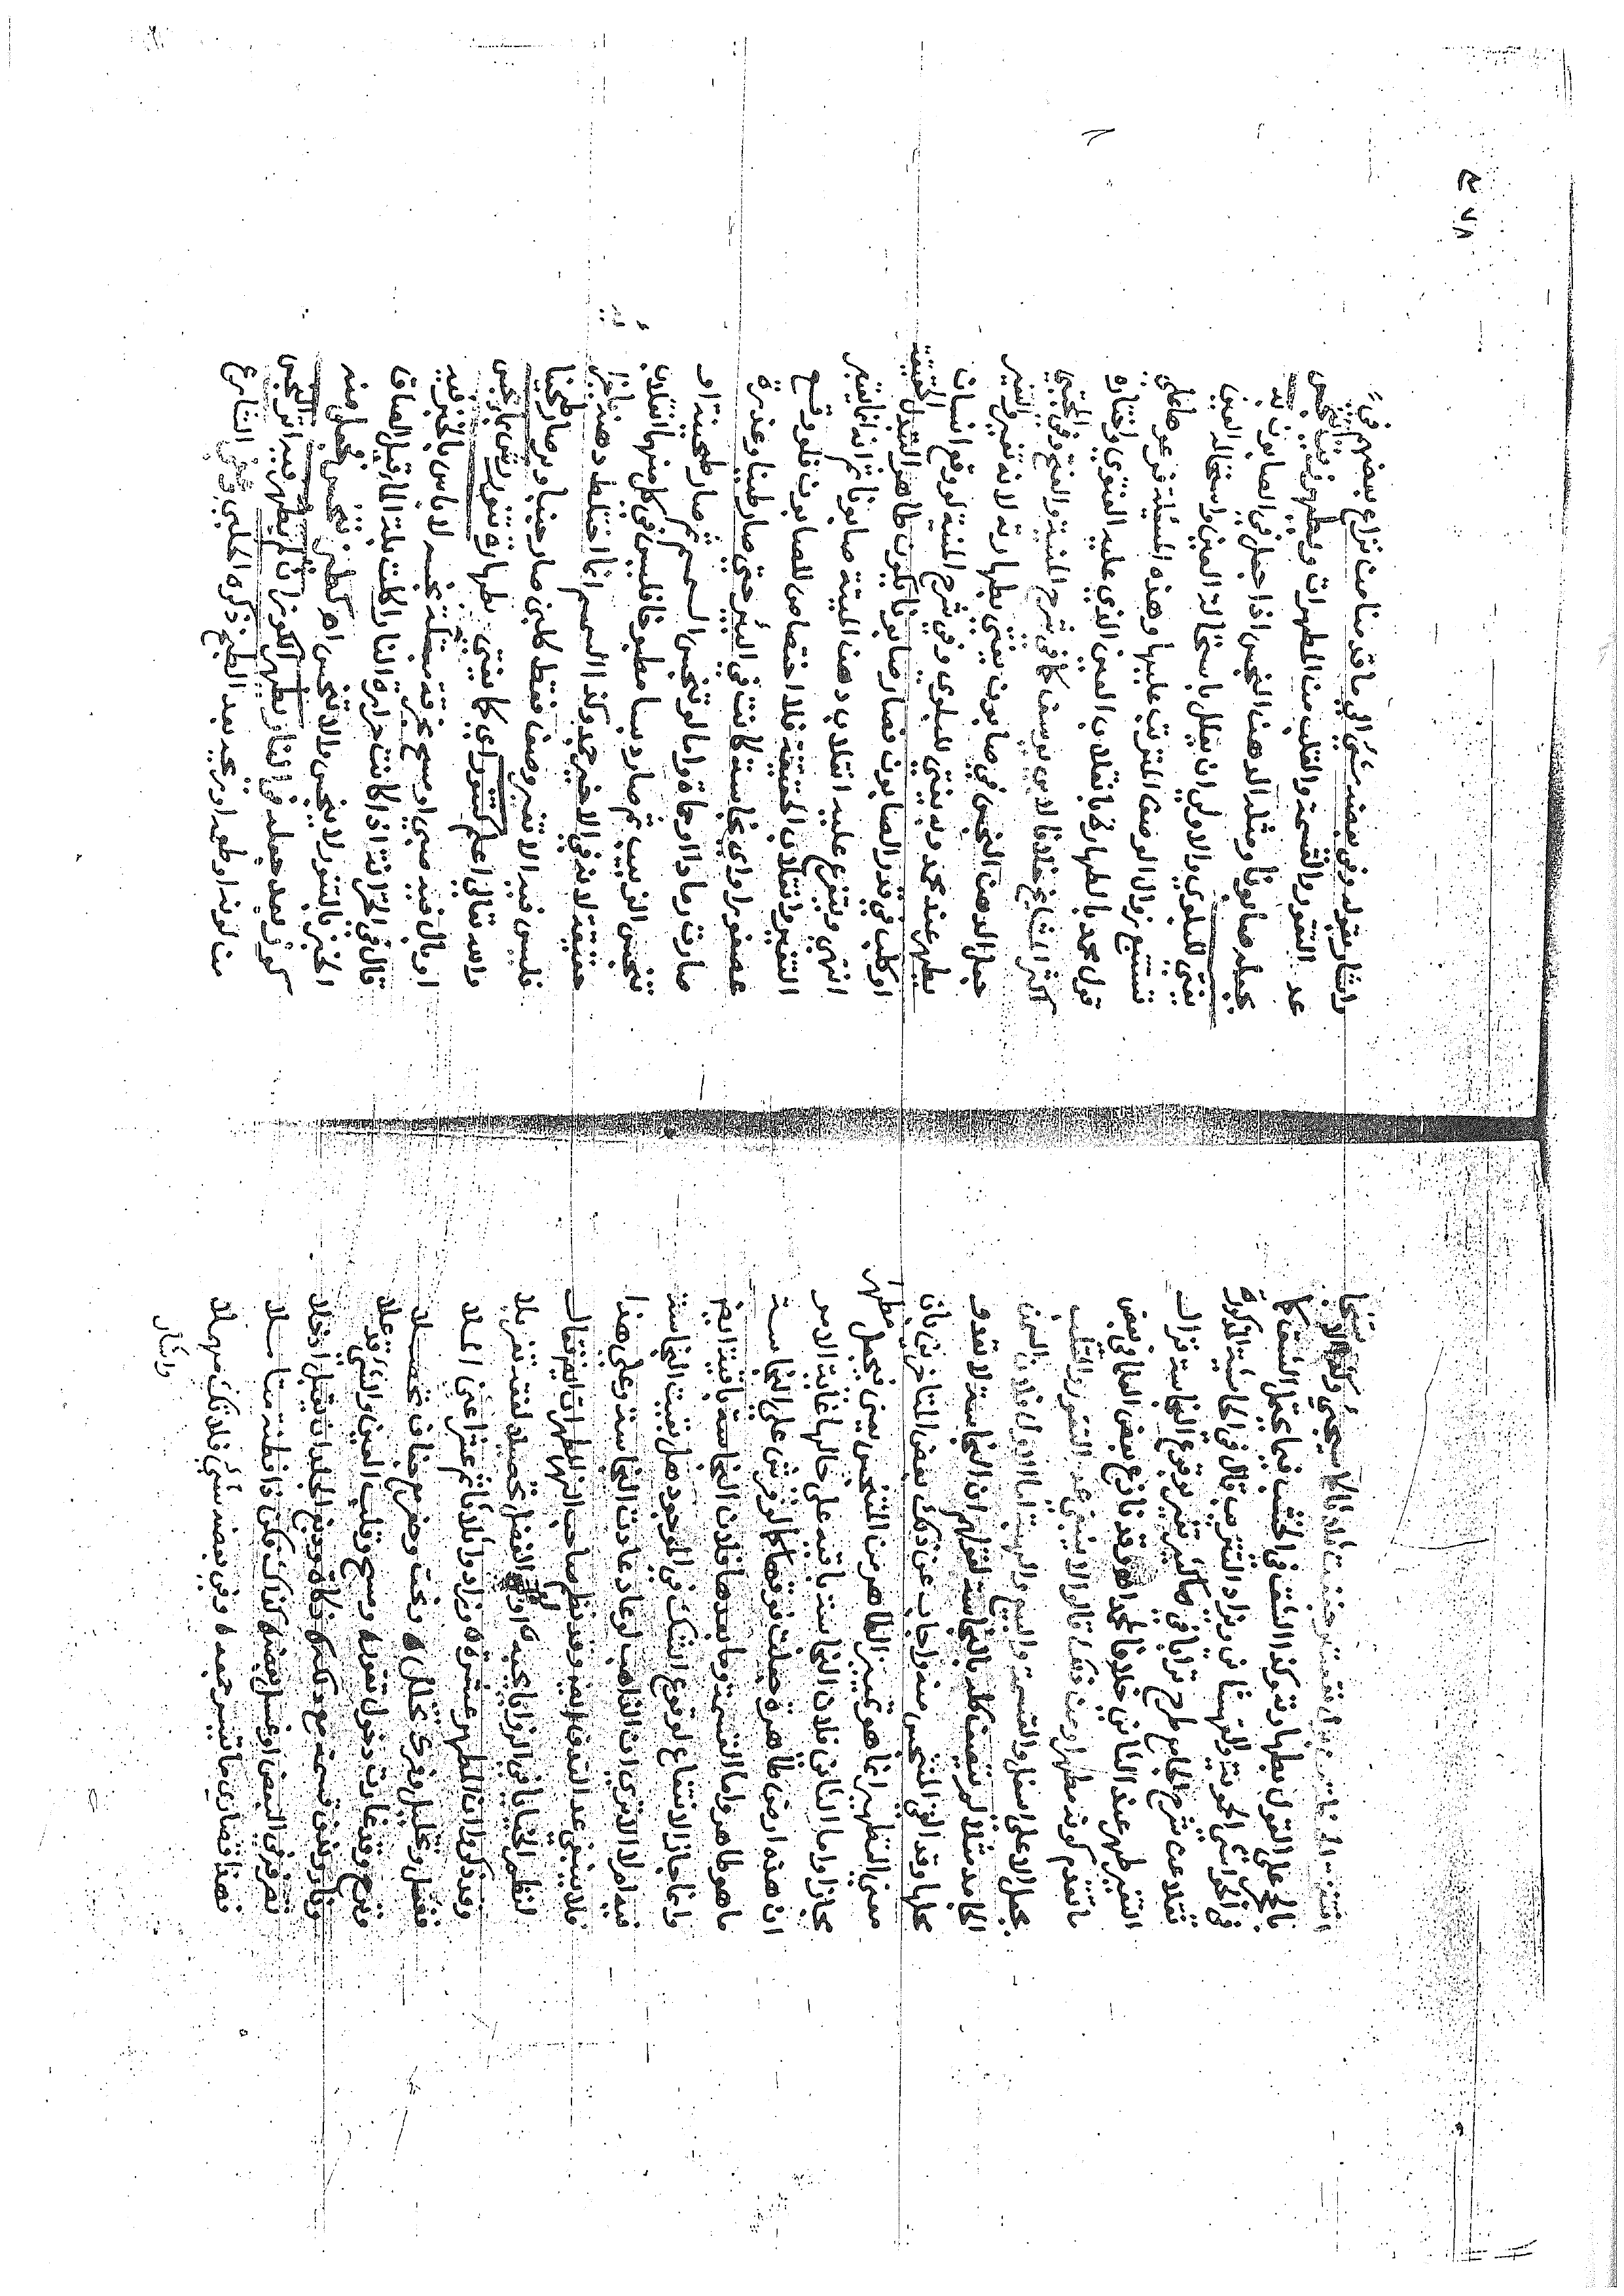 نالح على القول بطهارته وكذا الشق في الخشب فيما يحتمل الشق كما
في الحواشي الحموية والقهستاني وزاد التشرب قال في الحاشية المذكورة
نقلا عن شرح الجامع طرح ترابا في كالبئر تغير بوقوع النجاسة فزال
التغير طهر عند الثاني خلافا لمحمد اهـ وقد نازع بعض العلما في بعض
ما تقدم كونه مطهرا ومن ذلك قالوا لا ينبغي عد التقور والتقلب
بجعل الاعلى اسفل والقسمة والبيع والهبة اما الاول فلان السمن
الجامد مثلا لم يتصف كله بالنجاسة لظهور ان النجاسة لا تعدو
محلها وقد القى المتنجس منه واجاب عن ذلك بعض المتاخرين بان
معنى التطهير انما هو تمييز الطاهر من المتنجس يعني فجعل مطهر
مجازا واما الثاني فلان النجاسة باقية على حالها غاية الامر
ان هذه ارض طاهرة جعلت فوقها كما لو فرش على النجاسة
ما هو طاهر واما القسمة وما بعدها فلان النجاسة باقية ايضا
وانما جاز الانتفاع لوقوع الشك في الموجود هل بقيت النجاسة
فيه ام لا الا ترى ان الذاهب لو عاد عادت النجاسة وعلى هذا
فلا ينبغي عد الندف ايضا وقد نظم صاحب النهر المطهرات ايضا فقال
وقد ذكروا ان المطهر عشرة وزادوا ثلاثا ثم عشرا اعنى الملا
فغسل وتخليل وفرك تخلل ونحت وحفر ثم جفاف تحصلا
فنزح وقد غارت دخول تقوره ومسح وقلب العين والشئ قد علا
ونار وغلى قسمة مع دلكه ذكاة ودبغ الجلد ان يقبل اذ خلا
تصرفه في البعض او غسل بعضه كذلك فكن ذا فطنة متاملا
فهذا قصارى ما تيسر جمعه وفى بعضه شئ فلا تك مهملا
واشار
واشار بقوله وفى بعضه شئ الى ما قدمنا من نزاع بعضهم فى
عد التقور والقسمة والقلب من المطهرات ويطهر زيت تنجس
بجعله صابونا ومثله الدهن النجس اذا جعل في الصابون به
يفتى للبلوى والاولى ان يعلل باستحالة العين واستحالة العين
تستتبع زوال الوصف المترتب عليها وهذه المسئلة فرعوها على
قول محمد بالطهارة بانقلاب العين الذي عليه الفتوى واختاره
اكثر المشايخ خلافا لابي يوسف كما في شرح المنية والفتح وفى المجتبى
جعل الدهن النجس في صابون يفتى بطهارته لانه تغير والتغير
يطهر عند محمد وبه يفتى للبلوى وفى شرح المنية لو وقع انسان
او كلب في قدر الصابون فصار صابونا يكون طاهرا لتبدل الحقيقة
انتهى ويتفرع عليه انقلاب دهن الميتة صابونا ثم انه انما التغير
التغير وانقلاب الحقيقة فلا اختصاص للصابون فلو وقع
عصفور او اي نجاسة كانت في البئر حتى صار طينا وعذرة
صارت رمادا او حماة واما لو تنجس السمسم ثم صار طحينة او
تنجس الزبيب ثم صار دبسا مطبوخا فليس في كل منهما انقلاب
حقيقة لانه في الاخير جمد وكذا السمسم انما اختلط دهنه باجزائه
فليس فيه الا تغير وصف فقط كلبن صار جبنا وبر صار طحينا
والله تعالى اعلم كتنور اي كما يفتى بطهارة تنور رش بماء نجس
او بال فيه صبي او مسح بخرقة مبتلة نجسة لا باس بالخبز فيه
قال في الخزانة اذا كانت حرارة النار اكلت بلة الما قبل الصاق
الخبز بالتنور لا يتنجس والا تنجس اهـ كطين تنجس فجعل منه
كوز بعد جعله في النار يطهر الكوز ان لم يظهر فيه اثر النجس
من لونه او طعمه او ريحه بعد الطبخ ذكره الحلبي وفى الشارح